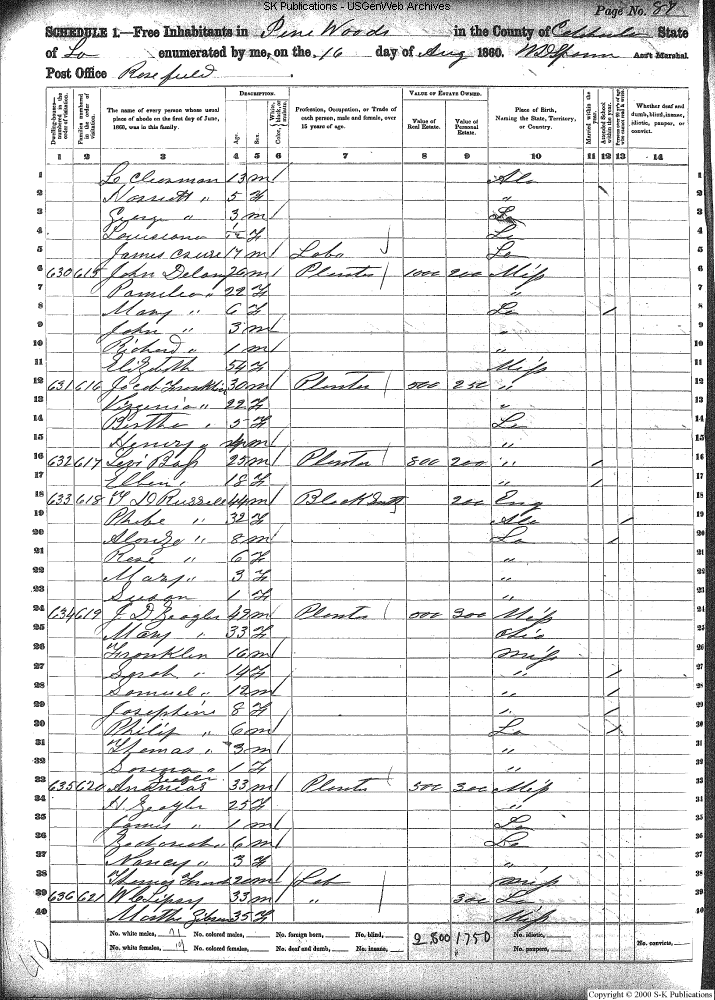 SK Publications - USGenWeb Archives
Page No. 87
SCHEDULE 1.—Free Inhabitants in Pine Woods in the County of Catahoula State
of La enumerated by me, on the 16 day of Aug 1860. Ass't Marshal.
Post Office Rosefield
Dwelling-houses—numbered in the order of visitation.
Families numbered in the order of visitation.
The name of every person whose usual place of abode on the first day of June, 1860, was in this family.
DESCRIPTION.
Age.
Sex.
Color, White, black, or mulatto.
Profession, Occupation, or Trade of each person, male and female, over 15 years of age.
VALUE OF ESTATE OWNED.
Value of Real Estate.
Value of Personal Estate.
Place of Birth, Naming the State, Territory, or Country.
Married within the year.
Attended School within the year.
Persons over 20 y'rs of age who cannot read & write.
Whether deaf and dumb, blind, insane, idiotic, pauper, or convict.
1 2 3 4 5 6 7 8 9 10 11 12 13 14
1 13 m Ala 1
2 " 5 F " 2
3 George " 3 m La 3
4 Louisiana F La 4
5 James 17 m Labo La 5
6 630 615 John Delany 26 m Planter 1000 200 Miss 6
7 Pamelia " 22 F " 7
8 Mary " 6 F La 8
9 John " 3 m " 9
10 Richard " 1 m " 10
11 Elizabeth 54 F Miss 11
12 631 616 Jacob Franklin 30 m Planter 500 250 " 12
13 Virginia " 22 F " 13
14 Bertha " 5 F La 14
15 Henry " m " 15
16 632 617 Levi Bass 25 m Planter 800 200 " 16
17 Ellen " 18 F " 17
18 633 618 Russell 44 m Black Smith 200 Eng 18
19 Phebe " 32 F Ala 19
20 Alonzo " 8 m La 20
21 Rose " 6 F " 21
22 Mary " 3 F " 22
23 Susan 1 F 23
24 634 619 J. D. Zeagler 49 m Planter 000 300 Miss 24
25 Mary " 33 F Ohio 25
26 Franklin 16 m Miss 26
27 Sarah " 14 F " 27
28 Samuel " 12 m " 28
29 Josephine 8 F " 29
30 Philip " 6 m La 30
31 Thomas " 3 m " 31
32 " 1 F " 32
33 635 620 Ananias Zeagler 33 m Planter 500 300 Miss 33
34 H. Zeagler 25 F " 34
35 James " 1 m La 35
36 " 6 m La 36
37 Nancy " 3 F " 37
38 Thomas 20 m Lab Miss 38
39 636 621 33 m " 300 La 39
40 Martha 35 F Miss 40
No. white males, 21 No. colored males, No. foreign born, No. blind, 2 800 1750 No. idiotic, No. convicts,
No. white females, 19 No. colored females, No. deaf and dumb, No. insane, No. paupers,
Copyright © 2000 S-K Publications